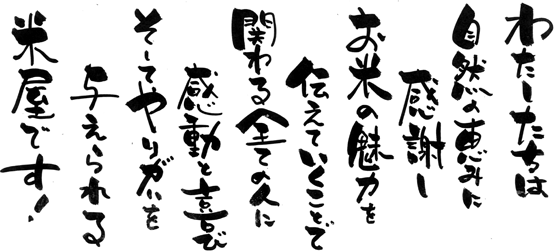 わたしたちは
自然の恵みに
感謝し
お米の魅力を
伝えていくことで
関わる全ての人に
感動と喜び
そしてやりがいを
与えられる
米屋です!